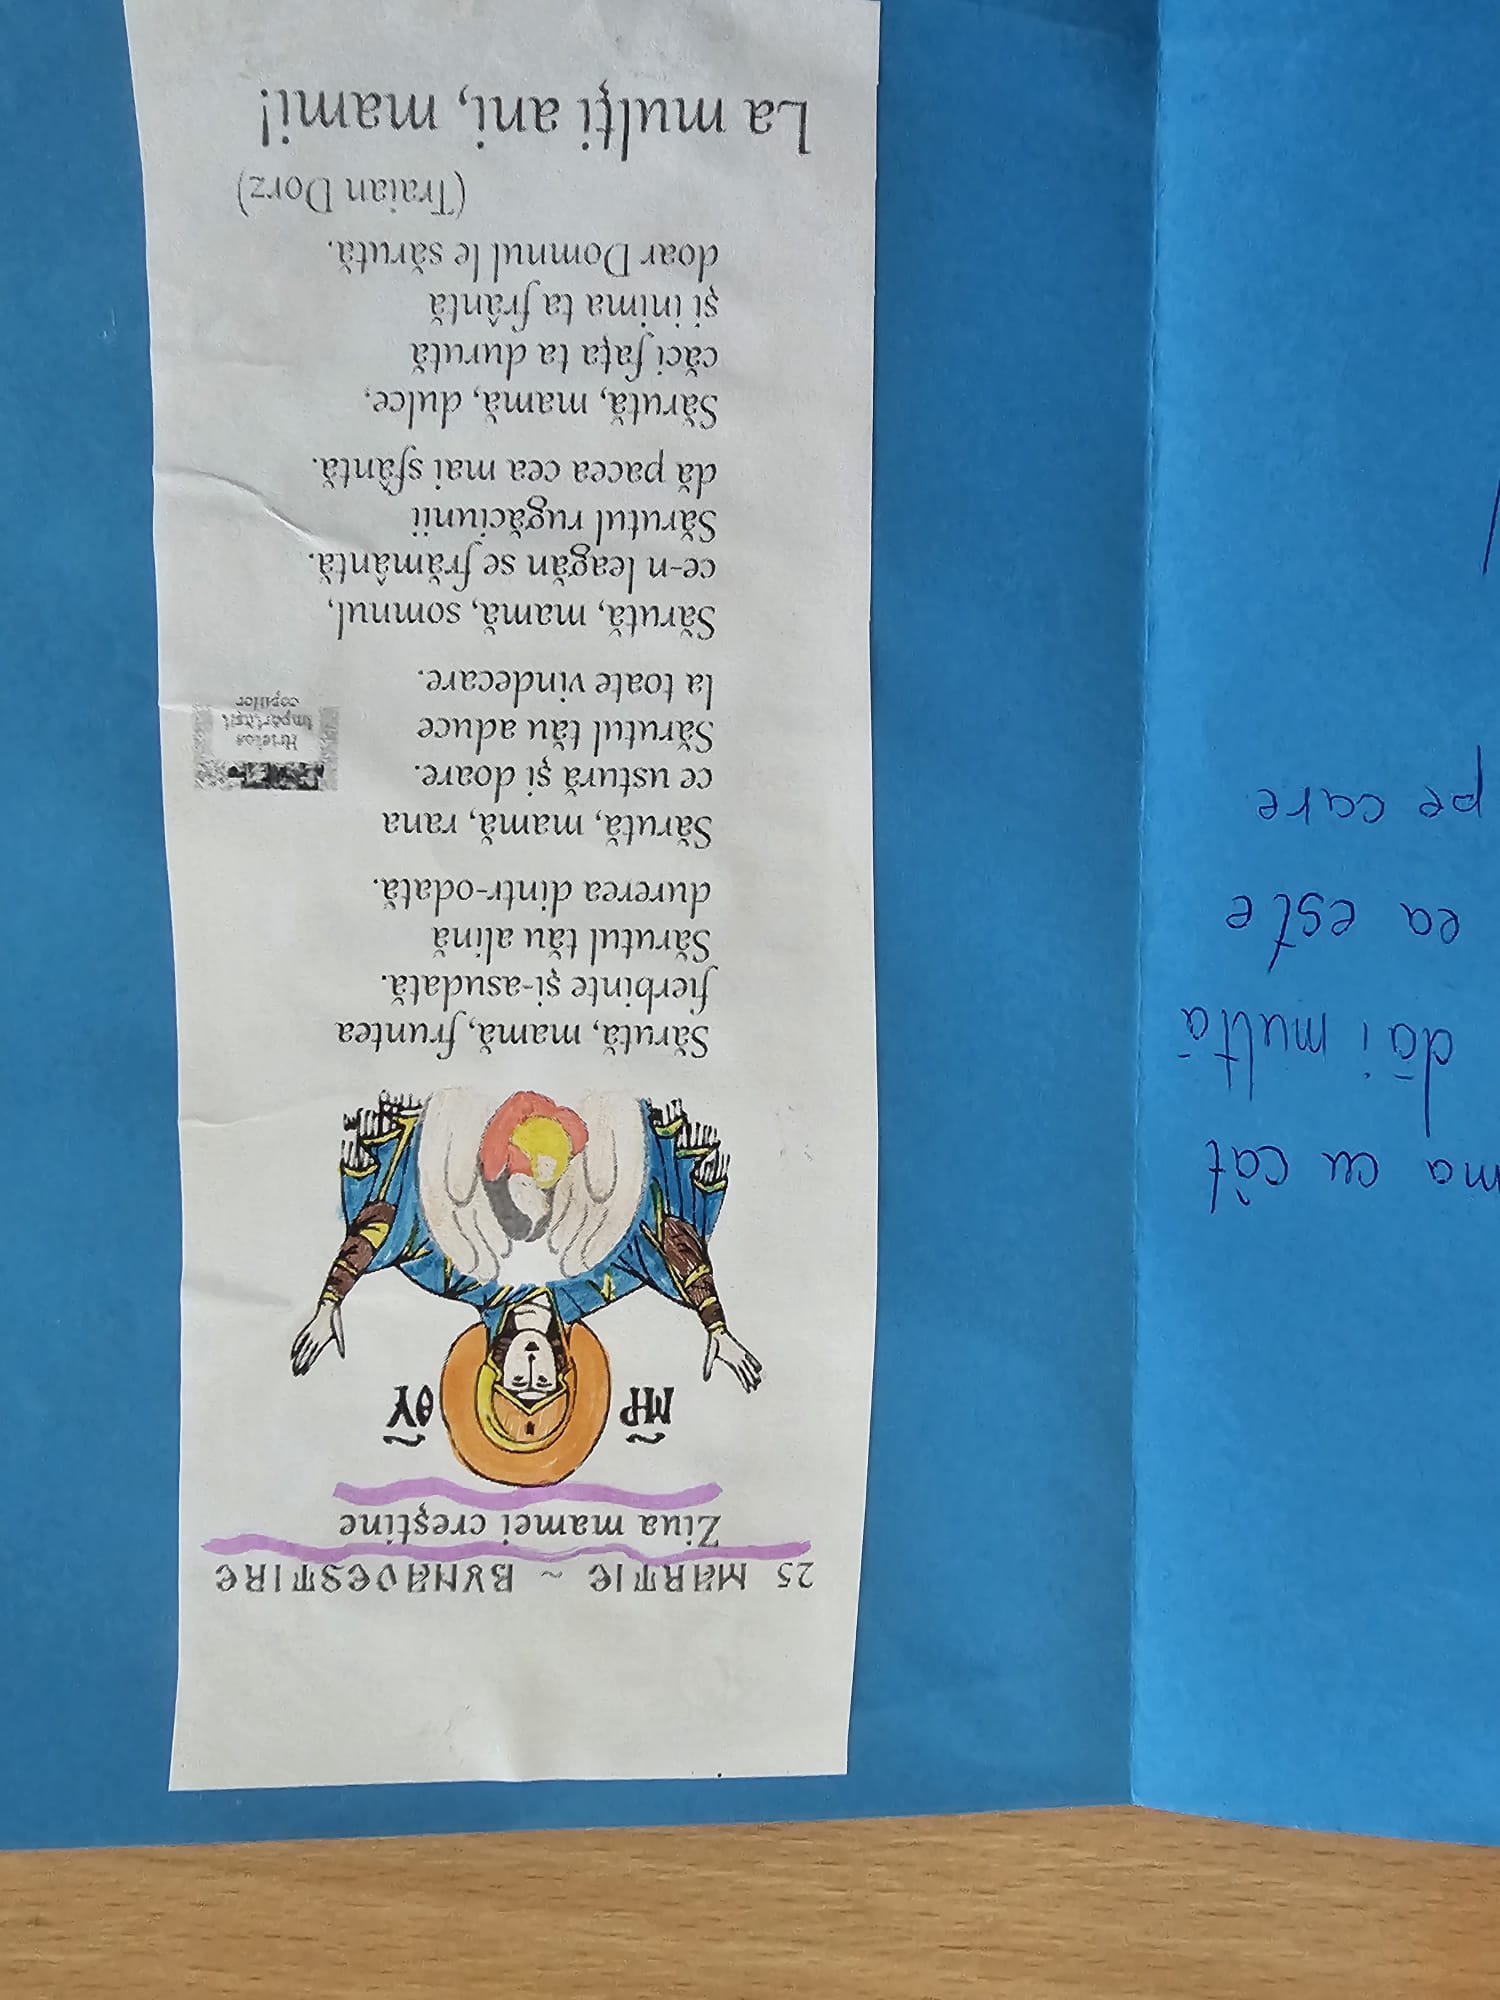 25 MARTIE ~ BUNAVESTIRE
Ziua mamei creştine
MP ΘY
Sărută, mamă, fruntea
fierbinte şi-asudată.
Sărutul tău alină
durerea dintr-odată.
Sărută, mamă, rana
ce ustură şi doare.
Sărutul tău aduce
la toate vindecare.
Hristos
împărtăşit
copiilor
Sărută, mamă, somnul,
ce-n leagăn se frământă.
Sărutul rugăciunii
dă pacea cea mai sfântă.
Sărută, mamă, dulce,
căci faţa ta durută
şi inima ta frântă
doar Domnul le sărută.
(Traian Dorz)
La mulţi ani, mami!
ma cu cât
dăi multă
ea este
pe care